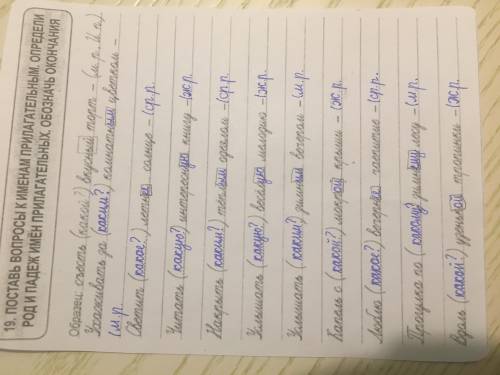 19. ПОСТАВЬ ВОПРОСЫ К ИМЕНАМ ПРИЛАГАТЕЛЬНЫМ. ОПРЕДЕЛИ
РОД И ПАДЕЖ ИМЁН ПРИЛАГАТЕЛЬНЫХ. ОБОЗНАЧЬ ОКОНЧАНИЯ
Образец: съесть (какой?) вкусный торт – (м.р., И.п.).
Ухаживать за (каким?) комнатным цветком –
(м.р.
Светит (какое?) летнее солнце – (ср.р.
Читать (какую?) интересную книгу – (ж.р.
Накрыть (каким?) тёплым одеялом – (ср.р.
Услышать (какую?) весёлую мелодию – (ж.р.
Услышать (каким?) зимним вечером – (м.р.
Капель с (какой?) мокрой крыши – (ж.р.
Люблю (какое?) вечернее чаепитие – (ср.р.
Прогулка по (какому?) зимнему лесу – (м.р.
вдоль (какой?) узенькой тропинки – (ж.р.